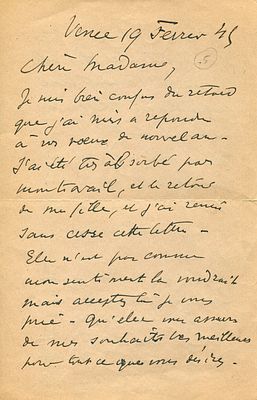 Vence 19 Fevrier 45
5
Chère Madame,
Je suis bien confus du retard
que j'ai mis a repondre
à vos vœux de nouvel an -
J'ai été très absorbé par
mon travail, et le retour
de ma fille, et j'ai remis
sans cesse cette lettre -
Elle n'est pas comme
mon sentiment la voudrait
mais acceptez là je vous
prie - Qu'elle vous assure
de mes souhaits les meilleurs
pour tout ce que vous désirez -